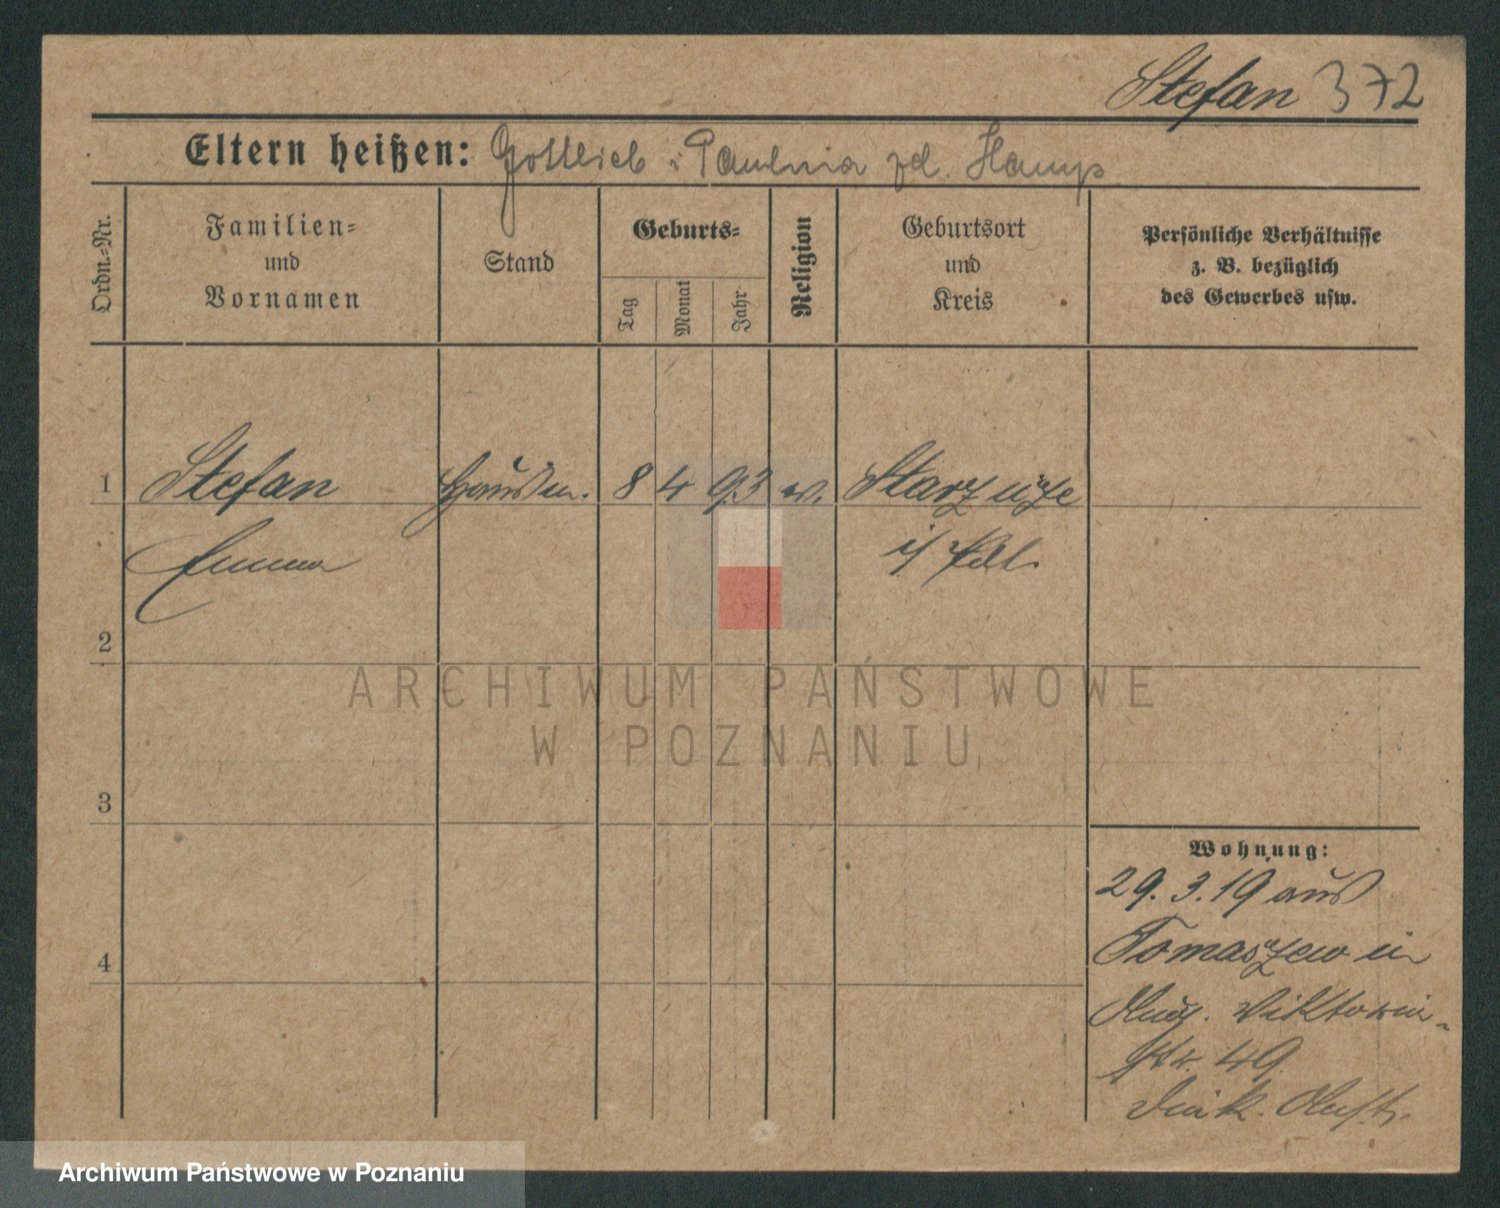 Stefan 372
Eltern heißen: Gottlieb i Paulina zd. Hamp
Ordn.=Nr.
Familien=
und
Vornamen
Stand
Geburts=
Tag
Monat
Jahr
Religion
Geburtsort
und
Kreis
Persönliche Verhältnisse
z. B. bezüglich
des Gewerbes usw.
1 Stefan 8 4 93 ev.
Emma
2
ARCHIWUM PAŃSTWOWE
W POZNANIU
3
4
Wohnung:
29.3.19 aus
Tomaszew in
Viktoria-
str. 49
Archiwum Państwowe w Poznaniu